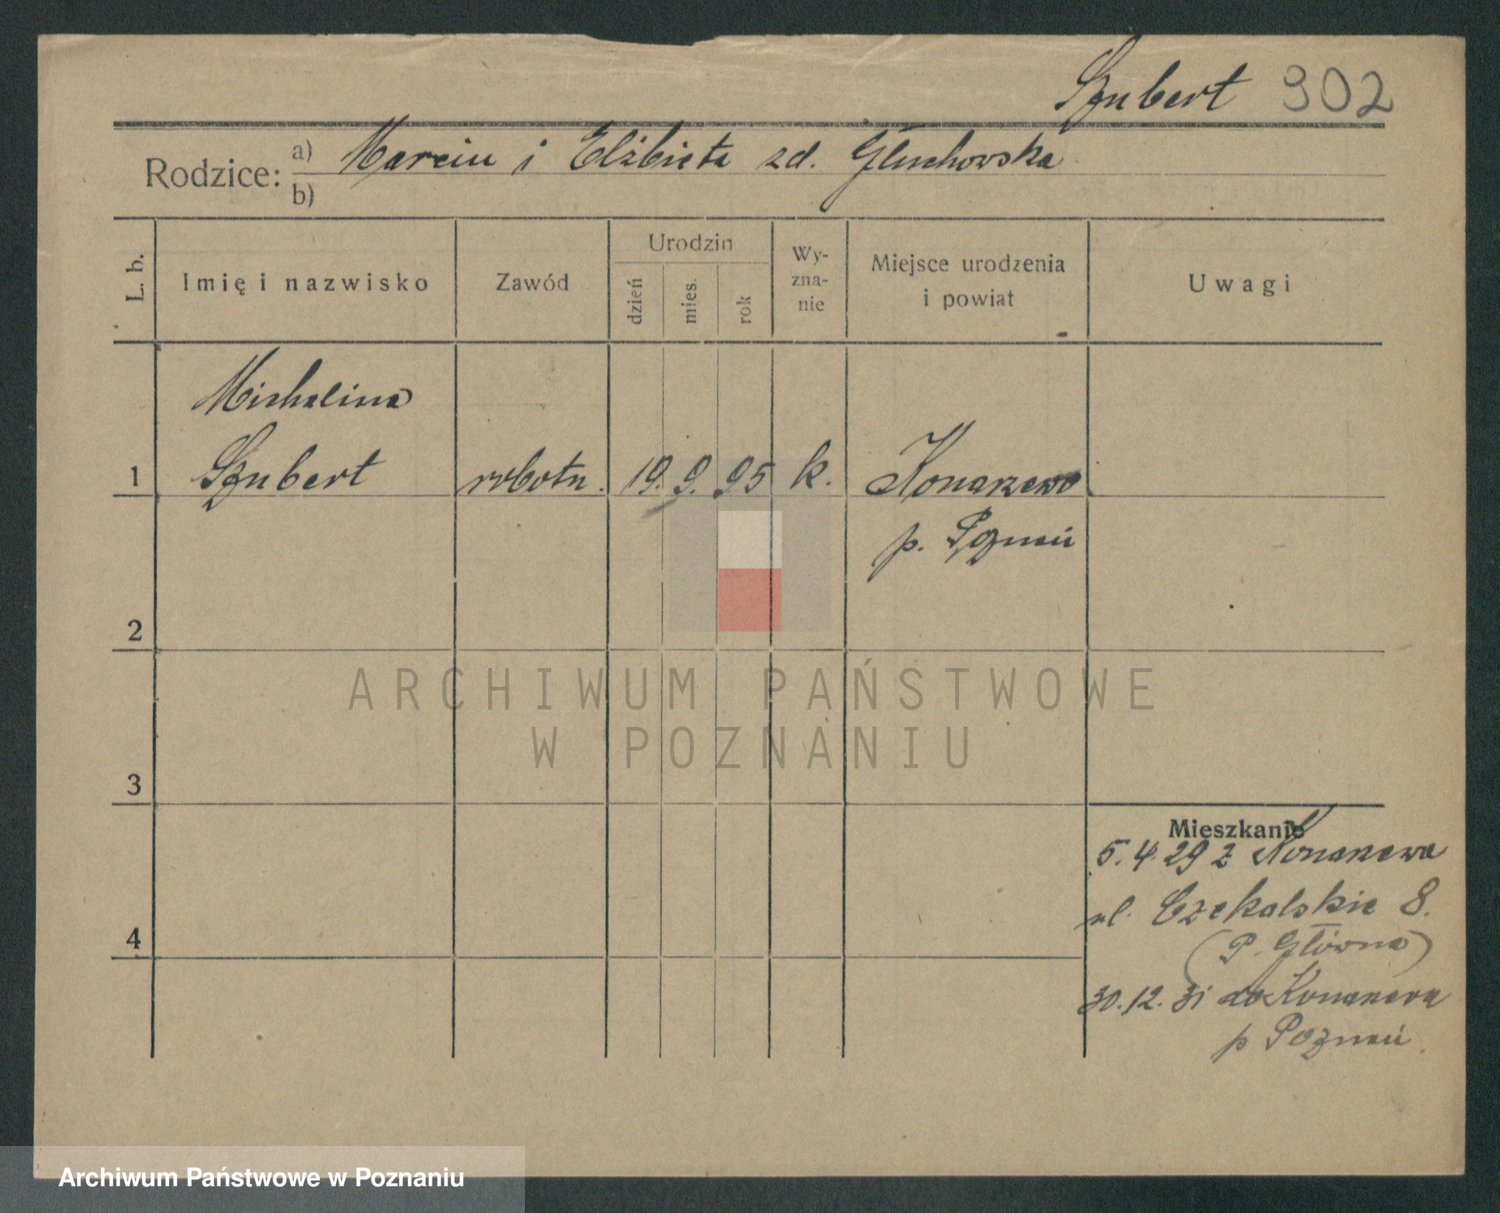 Szubert 902
Rodzice: a) Marcin i Elżbieta zd. Głuchowska
b)
L. b. Imię i nazwisko Zawód Urodzin dzień mies. rok Wy-zna-nie Miejsce urodzenia i powiat Uwagi
Michalina
1 Szubert robotn. 19. 9. 95 k. Konarzewo
p. Poznań
2
ARCHIWUM PAŃSTWOWE
W POZNANIU
3
Mieszkanie
5.4.29 z Konarzewa
ul. Czekalskie 8.
4
(P. Główna)
30.12.31 do Konarzewa
p Poznań
Archiwum Państwowe w Poznaniu